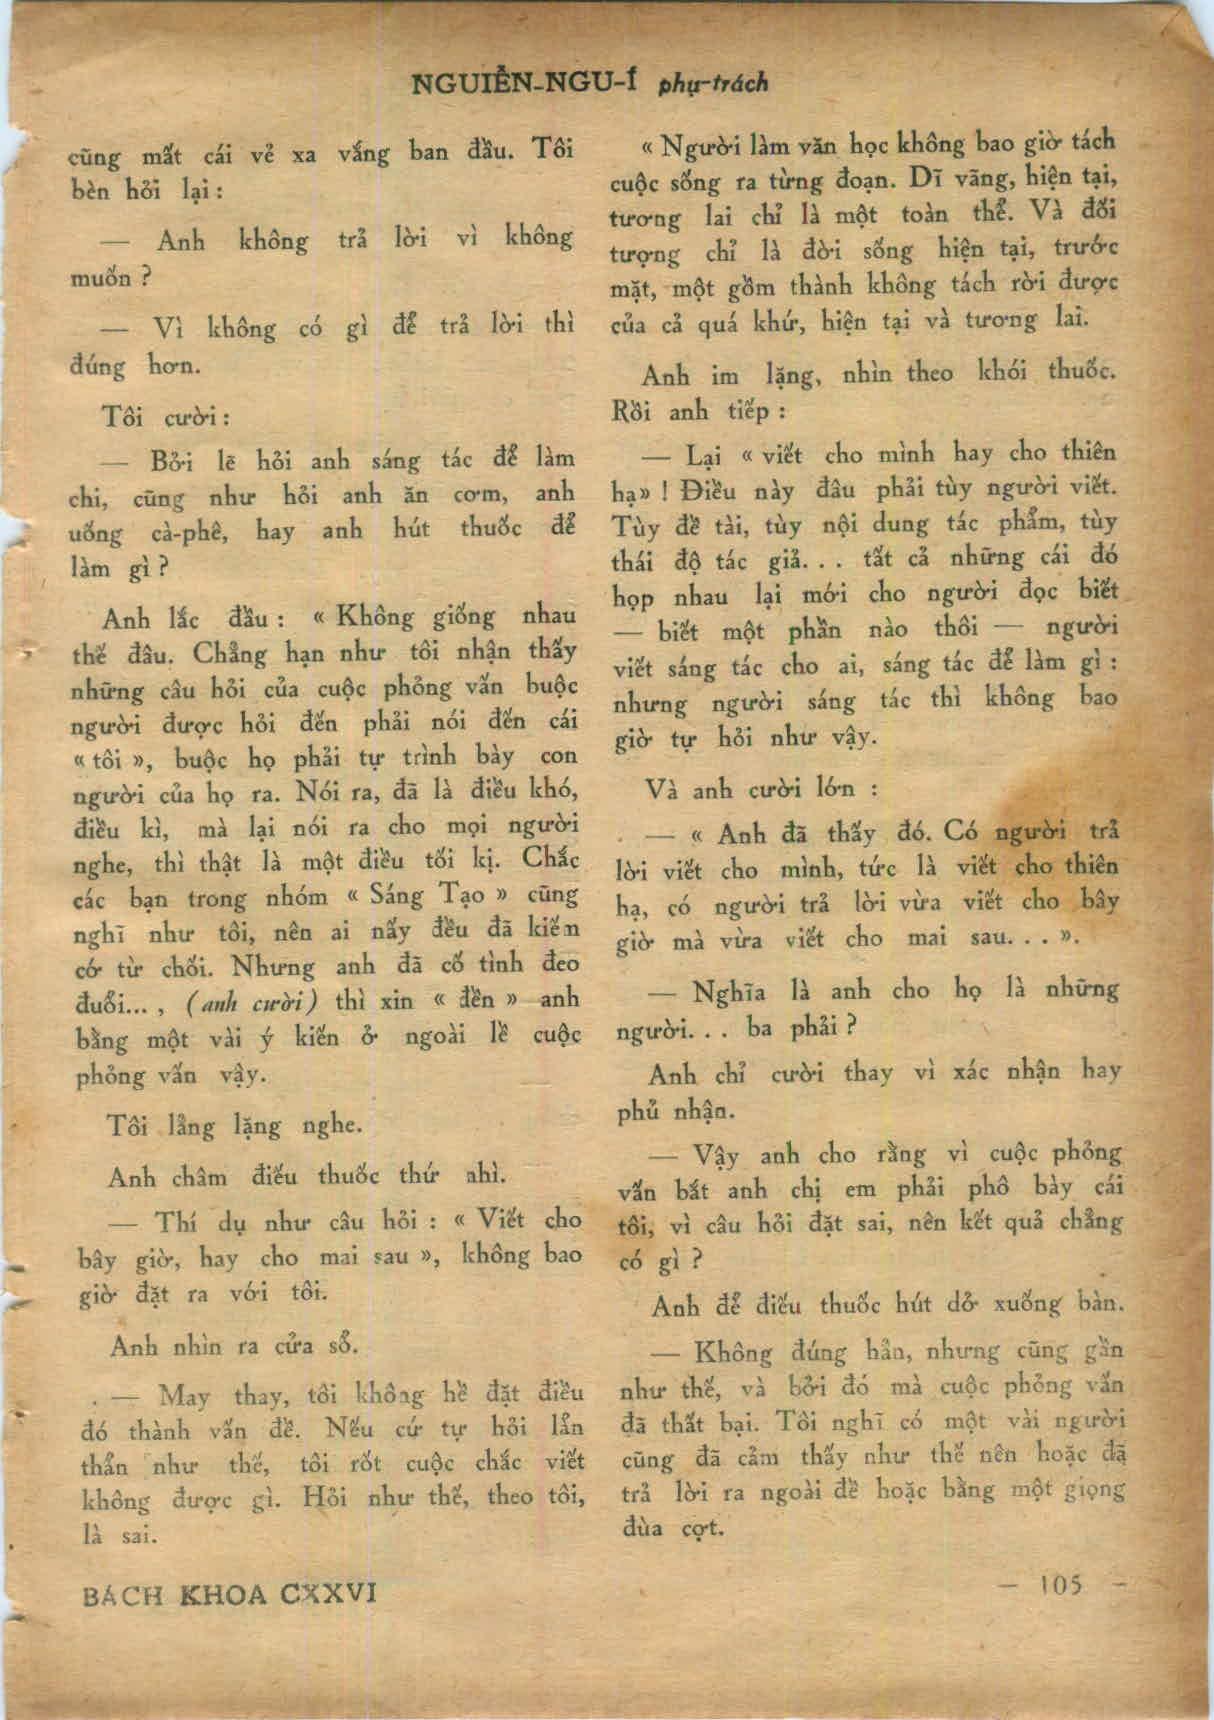 NGUIỄN-NGU-Í phụ-trách
cũng mất cái vẻ xa vắng ban đầu. Tôi
bèn hỏi lại :
— Anh không trả lời vì không
muốn ?
— Vì không có gì để trả lời thì
đúng hơn.
Tôi cười :
— Bởi lẽ hỏi anh sáng tác để làm
chi, cũng như hỏi anh ăn cơm, anh
uống cà-phê, hay anh hút thuốc để
làm gì ?
Anh lắc đầu : « Không giống nhau
thế đâu. Chẳng hạn như tôi nhận thấy
những câu hỏi của cuộc phỏng vấn buộc
người được hỏi đến phải nói đến cái
« tôi », buộc họ phải tự trình bày con
người của họ ra. Nói ra, đã là điều khó,
điều kì, mà lại nói ra cho mọi người
nghe, thì thật là một điều tối kị. Chắc
các bạn trong nhóm « Sáng Tạo » cũng
nghĩ như tôi, nên ai nấy đều đã kiếm
cớ từ chối. Nhưng anh đã cố tình đeo
đuổi... , (anh cười) thì xin « đền » anh
bằng một vài ý kiến ở ngoài lề cuộc
phỏng vấn vậy.
Tôi lẳng lặng nghe.
Anh châm điếu thuốc thứ nhì.
— Thí dụ như câu hỏi : « Viết cho
bây giờ, hay cho mai sau », không bao
giờ đặt ra với tôi.
Anh nhìn ra cửa sổ.
— May thay, tôi không hề đặt điều
đó thành vấn đề. Nếu cứ tự hỏi lẩn
thẩn như thế, tôi rốt cuộc chắc viết
không được gì. Hỏi như thế, theo tôi,
là sai.
« Người làm văn học không bao giờ tách
cuộc sống ra từng đoạn. Dĩ vãng, hiện tại,
tương lai chỉ là một toàn thể. Và đối
tượng chỉ là đời sống hiện tại, trước
mặt, một gồm thành không tách rời được
của cả quá khứ, hiện tại và tương lai.
Anh im lặng, nhìn theo khói thuốc.
Rồi anh tiếp :
— Lại « viết cho mình hay cho thiên
hạ» ! Điều này đâu phải tùy người viết.
Tùy đề tài, tùy nội dung tác phẩm, tùy
thái độ tác giả. . . tất cả những cái đó
họp nhau lại mới cho người đọc biết
— biết một phần nào thôi — người
viết sáng tác cho ai, sáng tác để làm gì :
nhưng người sáng tác thì không bao
giờ tự hỏi như vậy.
Và anh cười lớn :
— « Anh đã thấy đó. Có người trả
lời viết cho mình, tức là viết cho thiên
hạ, có người trả lời vừa viết cho bây
giờ mà vừa viết cho mai sau. . . ».
— Nghĩa là anh cho họ là những
người. . . ba phải ?
Anh chỉ cười thay vì xác nhận hay
phủ nhận.
— Vậy anh cho rằng vì cuộc phỏng
vấn bắt anh chị em phải phô bày cái
tôi, vì câu hỏi đặt sai, nên kết quả chẳng
có gì ?
Anh để điếu thuốc hút dở xuống bàn.
— Không đúng hẳn, nhưng cũng gần
như thế, và bởi đó mà cuộc phỏng vấn
đã thất bại. Tôi nghĩ có một vài người
cũng đã cảm thấy như thế nên hoặc đã
trả lời ra ngoài đề hoặc bằng một giọng
đùa cợt.
BÁCH KHOA CXXVI
— 105 —